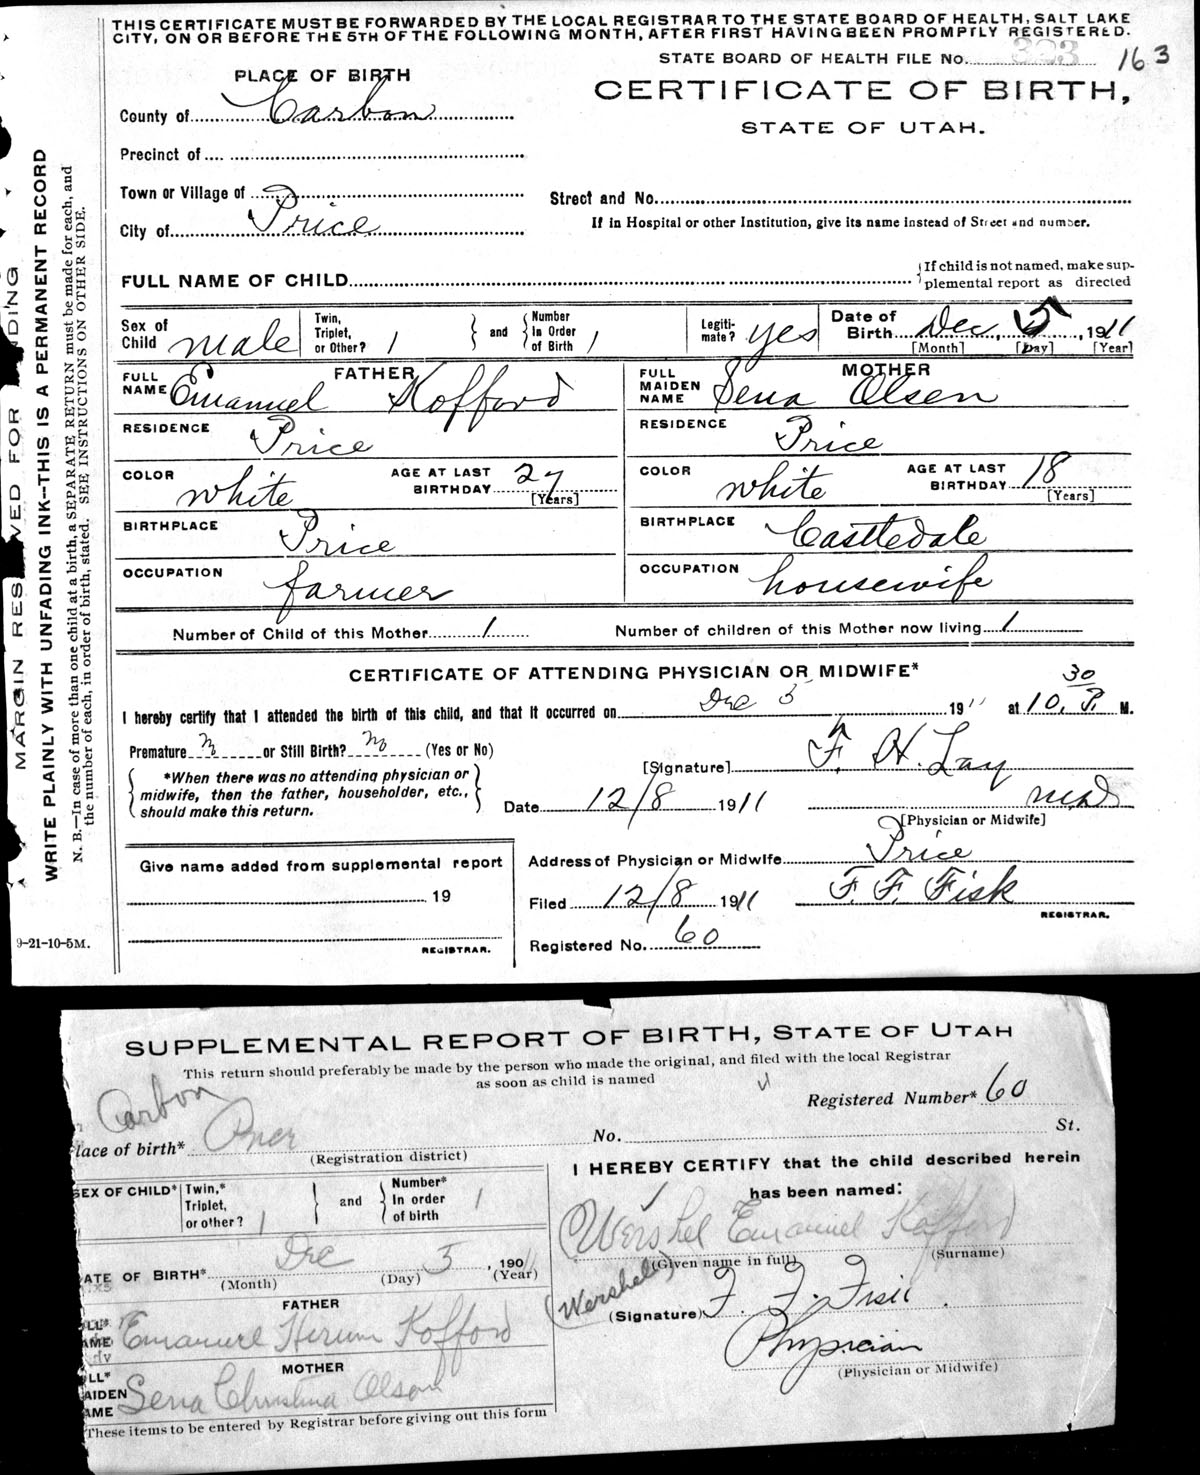 THIS CERTIFICATE MUST BE FORWARDED BY THE LOCAL REGISTRAR TO THE STATE BOARD OF HEALTH, SALT LAKE
CITY, ON OR BEFORE THE 5TH OF THE FOLLOWING MONTH, AFTER FIRST HAVING BEEN PROMPTLY REGISTERED.
STATE BOARD OF HEALTH FILE NO. 323 163
PLACE OF BIRTH
CERTIFICATE OF BIRTH,
STATE OF UTAH.
County of Carbon
Precinct of
Town or Village of
Street and No.
City of Price
If in Hospital or other Institution, give its name instead of Street and number.
FULL NAME OF CHILD
If child is not named, make sup-
plemental report as directed
Sex of Child male
Twin, Triplet, or Other? 1 and Number In Order of Birth 1
Legiti-mate? yes
Date of Birth Dec 5, 1911
[Month] [Day] [Year]
FATHER
FULL NAME Emanuel Kofford
MOTHER
FULL MAIDEN NAME Sena Olsen
RESIDENCE Price
RESIDENCE Price
COLOR white AGE AT LAST BIRTHDAY 27 [Years]
COLOR white AGE AT LAST BIRTHDAY 18 [Years]
BIRTHPLACE Price
BIRTHPLACE Castledale
OCCUPATION farmer
OCCUPATION housewife
Number of Child of this Mother 1 Number of children of this Mother now living 1
CERTIFICATE OF ATTENDING PHYSICIAN OR MIDWIFE*
I hereby certify that I attended the birth of this child, and that it occurred on Dec 5 1911 at 10.30 P. M.
Premature No or Still Birth? No (Yes or No)
*When there was no attending physician or
midwife, then the father, householder, etc.,
should make this return.
[Signature] F. H. Lay
Date 12/8 1911 M.D.
[Physician or Midwife]
Give name added from supplemental report
19
REGISTRAR.
Address of Physician or Midwife Price
Filed 12/8 1911 F. F. Fisk
REGISTRAR.
Registered No. 60
9-21-10-5M.
WRITE PLAINLY WITH UNFADING INK—THIS IS A PERMANENT RECORD
N. B.—In case of more than one child at a birth, a SEPARATE RETURN must be made for each, and
the number of each, in order of birth, stated. SEE INSTRUCTIONS ON OTHER SIDE.
SUPPLEMENTAL REPORT OF BIRTH, STATE OF UTAH
This return should preferably be made by the person who made the original, and filed with the local Registrar
as soon as child is named
Carbon
Registered Number* 60
lace of birth* Price No. St.
(Registration district)
SEX OF CHILD*
Twin,* Triplet, or other? 1 and Number* In order of birth 1
ATE OF BIRTH* Dec 5, 1901
(Month) (Day) (Year)
FATHER
AME Emanuel Hirum Kofford
MOTHER
LL* AIDEN AME Sena Christina Olson
These items to be entered by Registrar before giving out this form
I HEREBY CERTIFY that the child described herein
has been named:
Wershel Emanuel Kofford
(Given name in full) (Surname)
(Wershel)
(Signature) F. F. Fisk
Physician
(Physician or Midwife)